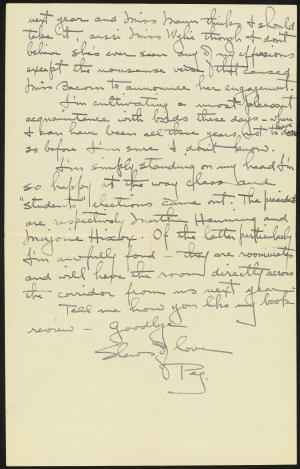 next year and Miss Mann thinks I should
take it, aussi Miss Wylie though I don't
believe she's ever seen any of my effusions
except the nonsense verse that caused
Miss Bacon to announce her engagement.
I'm cultivating a most pleasant
acquaintance with birds these days - where
I can have been all these years, not to have done
so before I'm sure I don't know.
I'm simply standing on my head I'm
so happy at the way class and
"students" elections came out. The presidents
are respectively Martha Hanning and
Marjorie Hiscox. Of the latter particularly
I'm awfully fond -- they are roommates
and will have the room directly across
the corridor from us next year.
Tell me how you like my book
review - Goodbye
Slews of love
Peg.